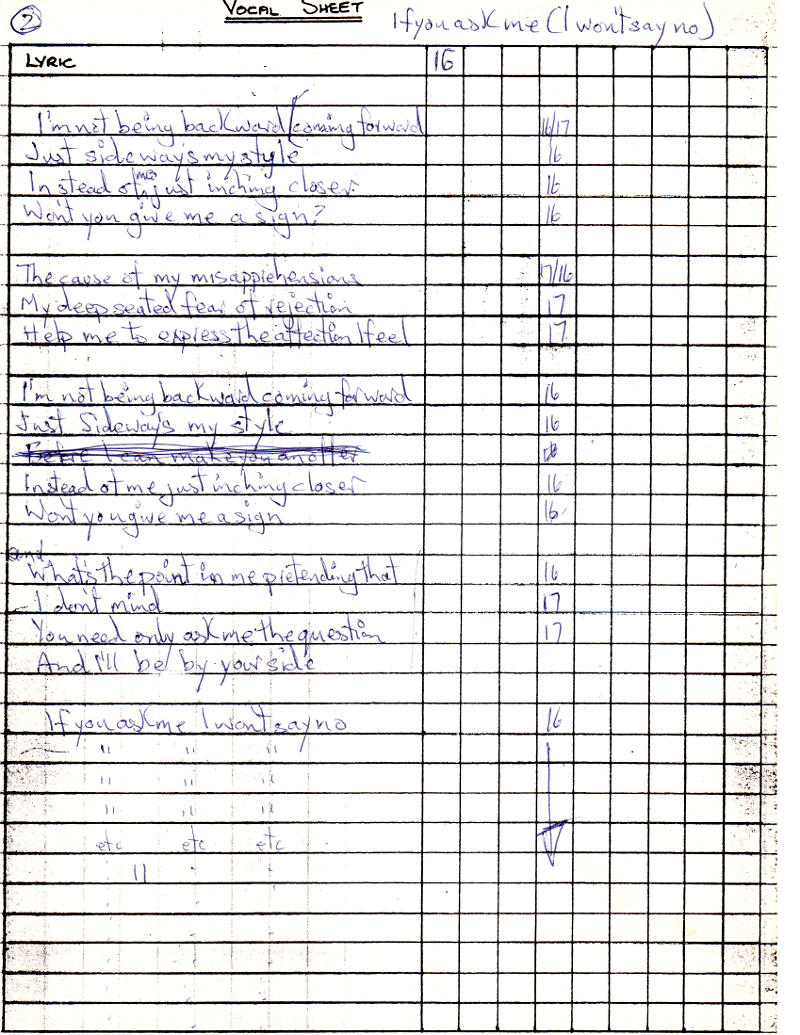 2 VOCAL SHEET If you ask me (I won't say no)
LYRIC 16
I'm not being backward (coming forward 16/17
Just sideway's my style 16
Instead of me just inching closer. 16
Won't you give me a sign? 16
The cause of my misapprehensions 17/16
My deep seated fear of rejection 17
Help me to express the affection I feel 17
I'm not being backward coming forward 16
Just Sideway's my style 16
Before I can make you an offer
Instead of me just inching closer 16
Won't you give me a sign 16
and
What's the point in me pretending that 16
I don't mind 17
You need only ask me the question 17
And I'll be by your side
If you ask me I won't say no 16
" " "
" " "
" " "
etc etc etc
"